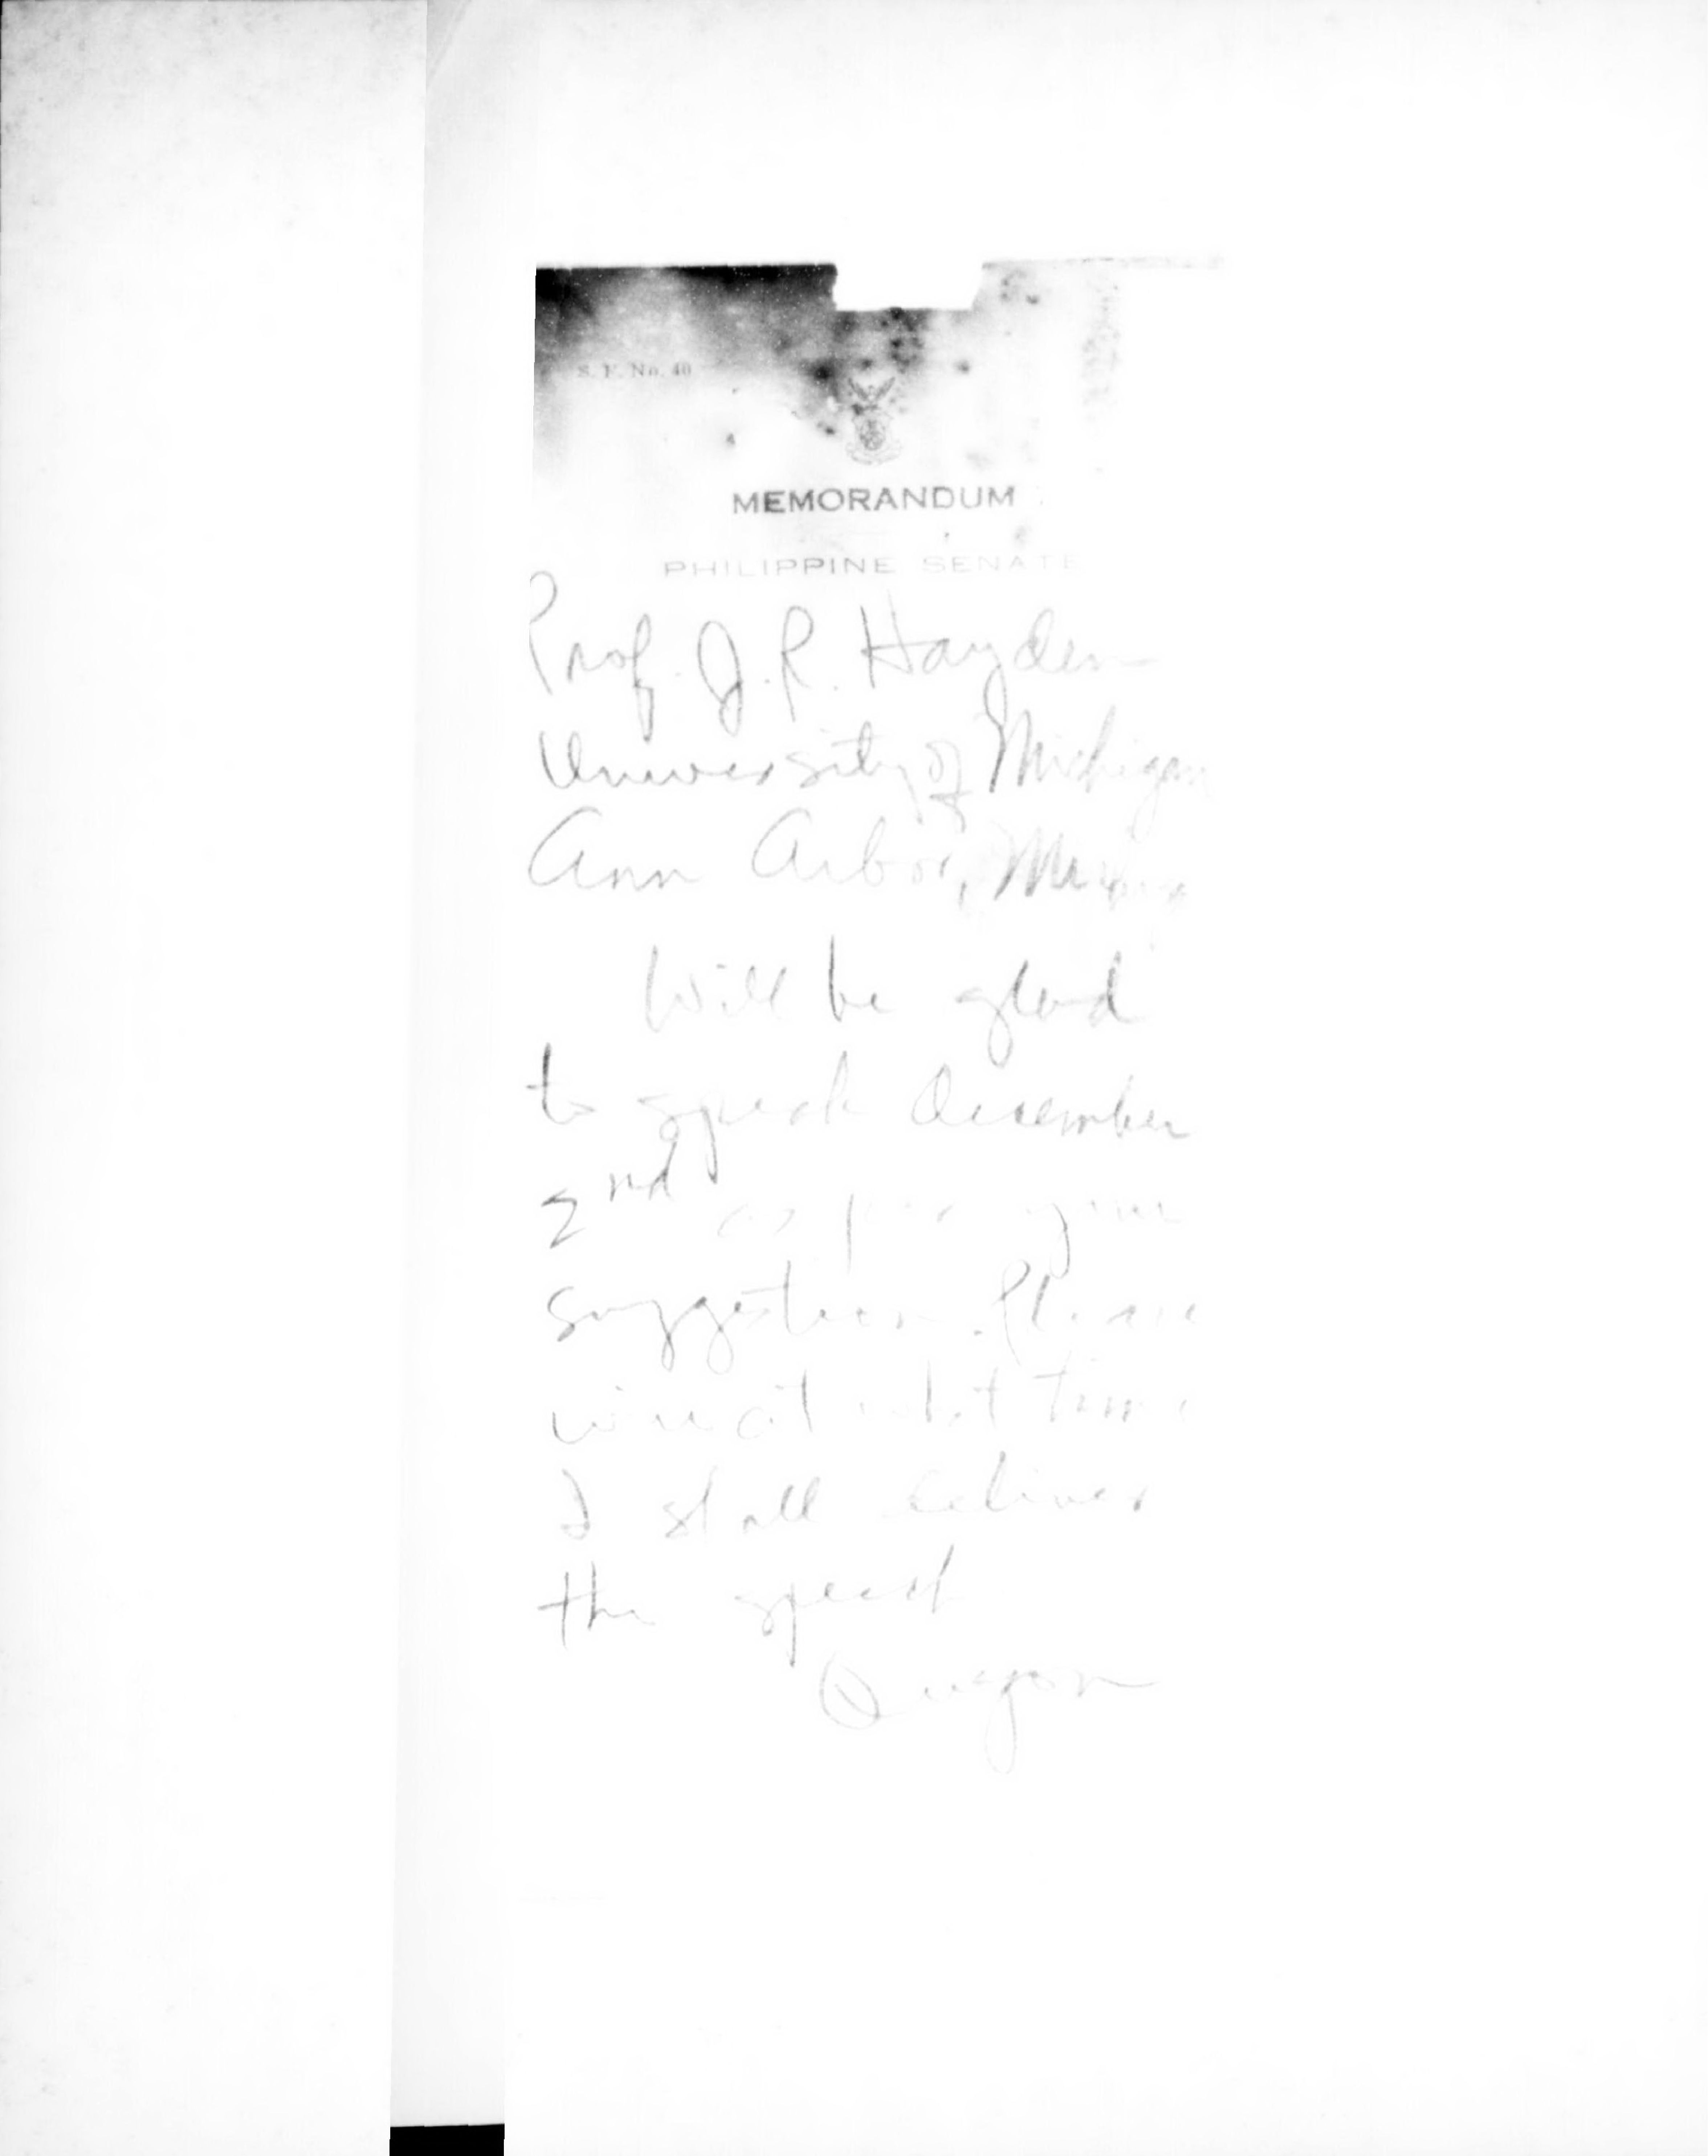 S. F. No. 40
MEMORANDUM
PHILIPPINE SENATE
Prof. J. R. Hayden
University of Michigan
Ann Arbor, Michigan
Will be glad
to speak December
2nd as per your
suggestion. Please
wire at what time
I shall deliver
the speech
Quezon